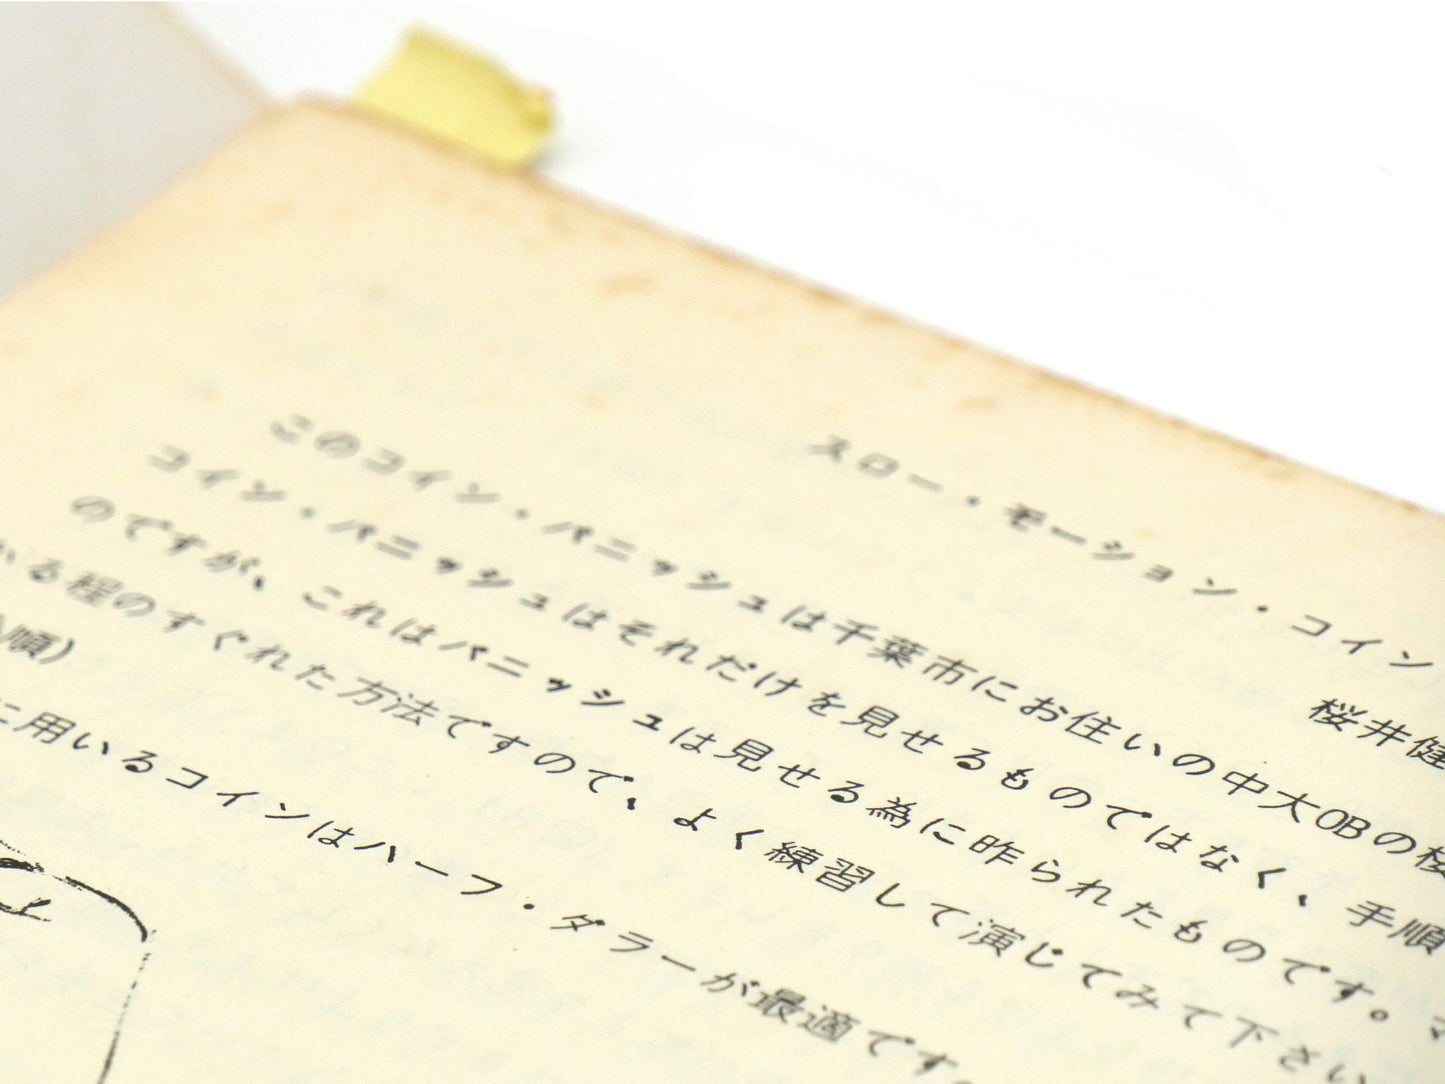 スロー・モーション・コイン
桜井健
このコイン・バニッシュは千葉市にお住いの中大OBの桜
コイン・バニッシュはそれだけを見せるものではなく、手順
のですが、これはバニッシュは見せる為に昨られたものです。
いる程のすぐれた方法ですので、よく練習して演じてみて下さい
順)
に用いるコインはハーフ・ダラーが最適です。